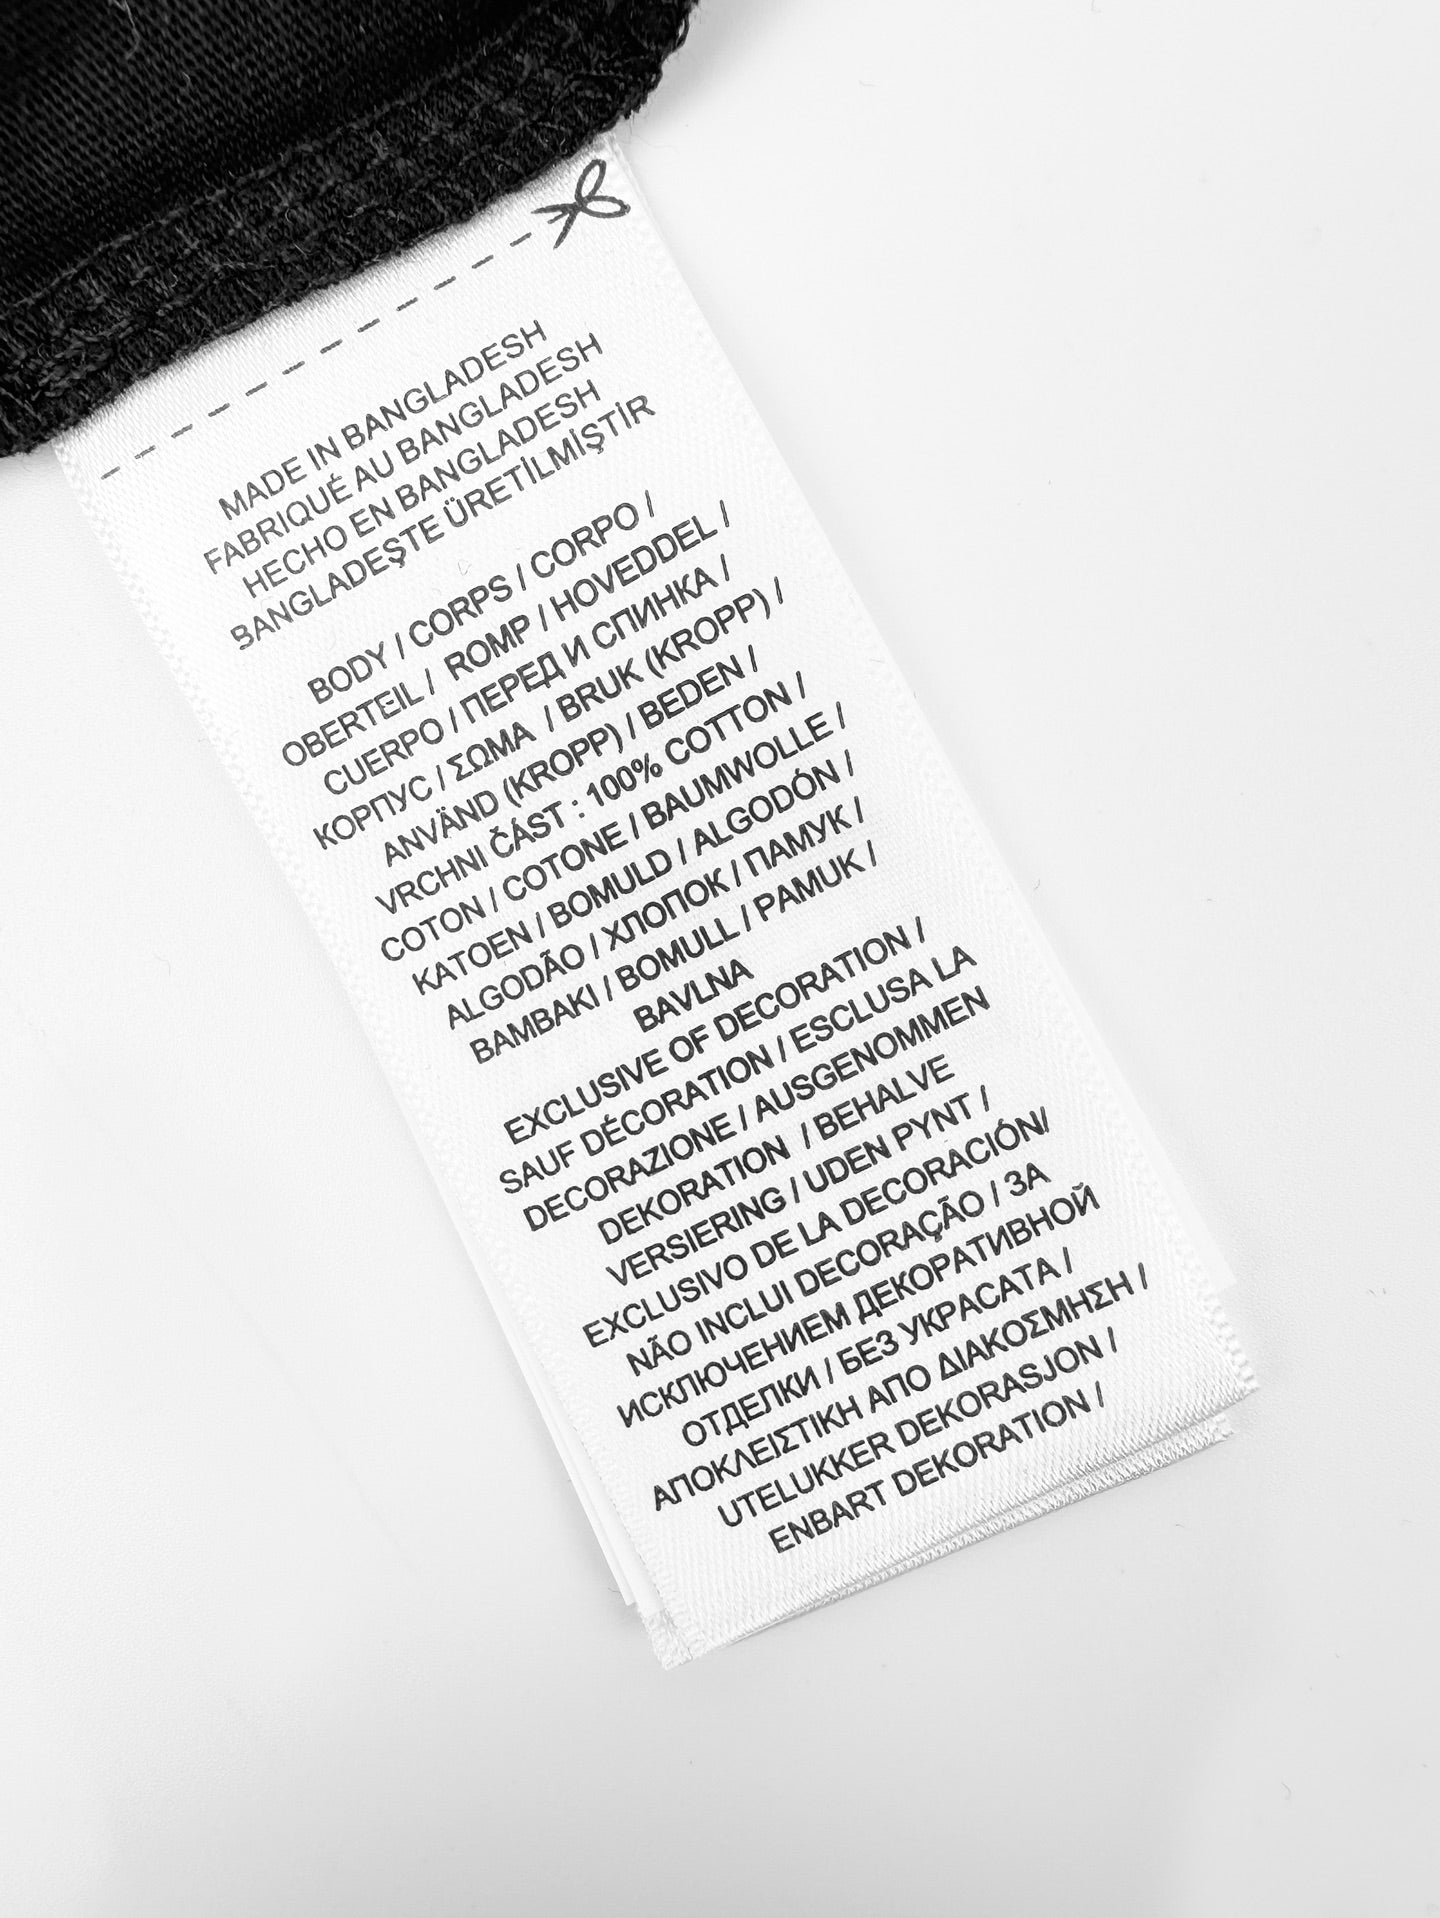 MADE IN BANGLADESH
FABRIQUÉ AU BANGLADESH
HECHO EN BANGLADESH
BANGLADEŞTE ÜRETİLMİŞTİR
BODY / CORPS / CORPO /
OBERTEIL / ROMP / HOVEDDEL /
CUERPO / ПЕРЕД И СПИНКА /
КОРПУС / ΣΩΜΑ / BRUK (KROPP) /
ANVÄND (KROPP) / BEDEN /
VRCHNI ČÁST : 100% COTTON /
COTON / COTONE / BAUMWOLLE /
KATOEN / BOMULD / ALGODÓN /
ALGODÃO / ХЛОПОК / ПАМУК /
BAMBAKI / BOMULL / PAMUK /
BAVLNA
EXCLUSIVE OF DECORATION /
SAUF DÉCORATION / ESCLUSA LA
DECORAZIONE / AUSGENOMMEN
DEKORATION / BEHALVE
VERSIERING / UDEN PYNT /
EXCLUSIVO DE LA DECORACIÓN/
NÃO INCLUI DECORAÇÃO / ЗА
ИСКЛЮЧЕНИЕМ ДЕКОРАТИВНОЙ
ОТДЕЛКИ / БЕЗ УКРАСАТА /
ΑΠΟΚΛΕΙΣΤΙΚΗ ΑΠΟ ΔΙΑΚΟΣΜΗΣΗ /
UTELUKKER DEKORASJON /
ENBART DEKORATION /